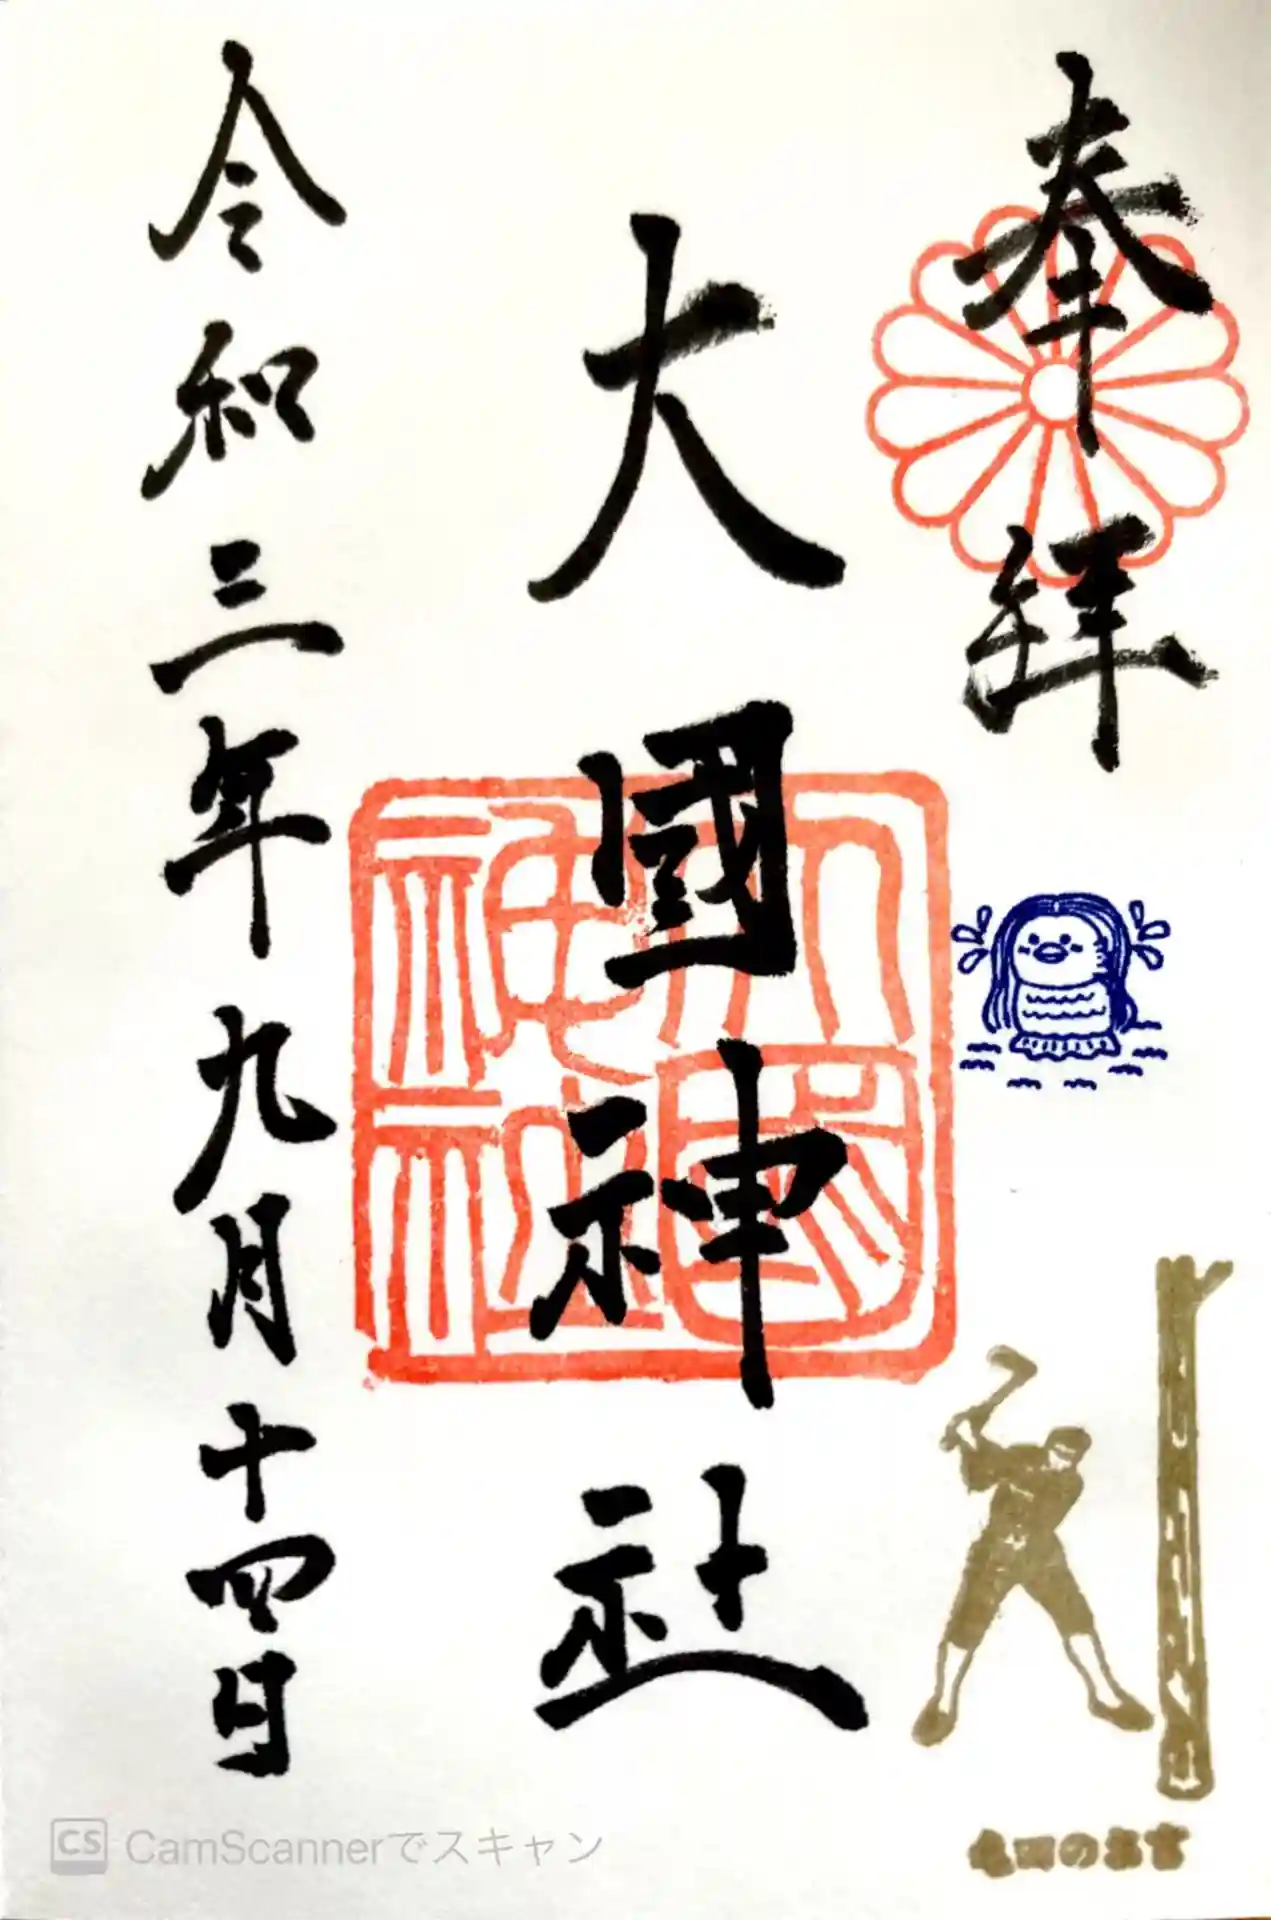 奉拝
大國神社
大國神社
令和三年九月十四日
CS CamScannerでスキャン